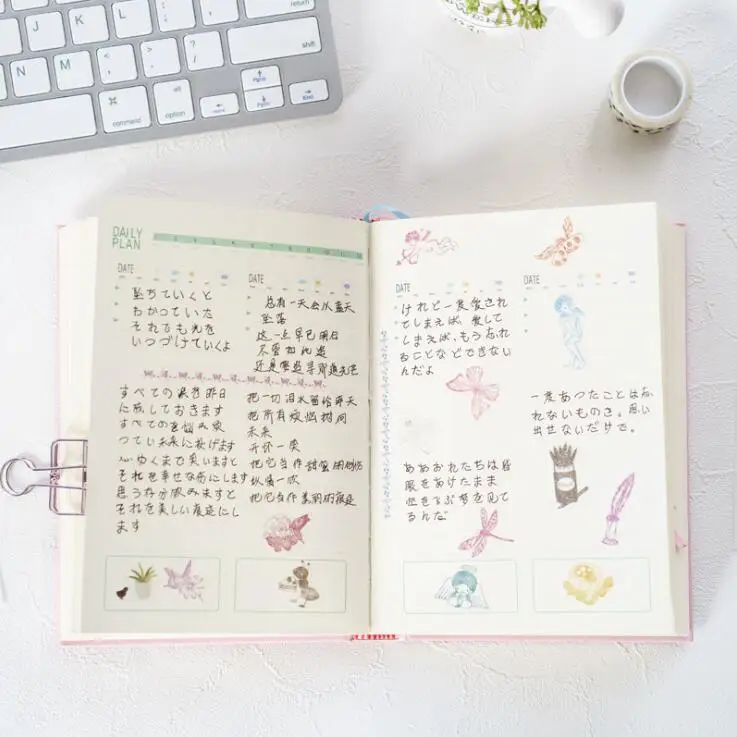 return
J
K
L
shift
N
M
command
alt
option
PgUp
PgDn
End
DAILY
PLAN
DATE
堕ちていくと
わかっていた
それでも光を
つづけていくよ
DATE
总有一天会从蓝天
坠落
这一点早已明白
不管如此
还是要追寻那道光芒
すべての涙を昨日
に流しておきます
すべての悩み
未来に投げます
心ゆくまで笑いますと
それを幸せな
にします
思う存分飲みますと
それを美しい夜にし
ます
把一切泪水留给昨天
把所有烦恼抛向
未来
开怀一笑
把它当作甜蜜
纵情一饮
把它当作美丽的夜
DATE
けれど一度愛され
てしまえば、愛して
しまえば、もう忘れ
ることなどできない
んだよ
ああおれたちは
眼をあけたまま
空をとぶ夢を見て
るんだ
DATE
一度あったことは忘
れないものさ。思い
出せないだけで。